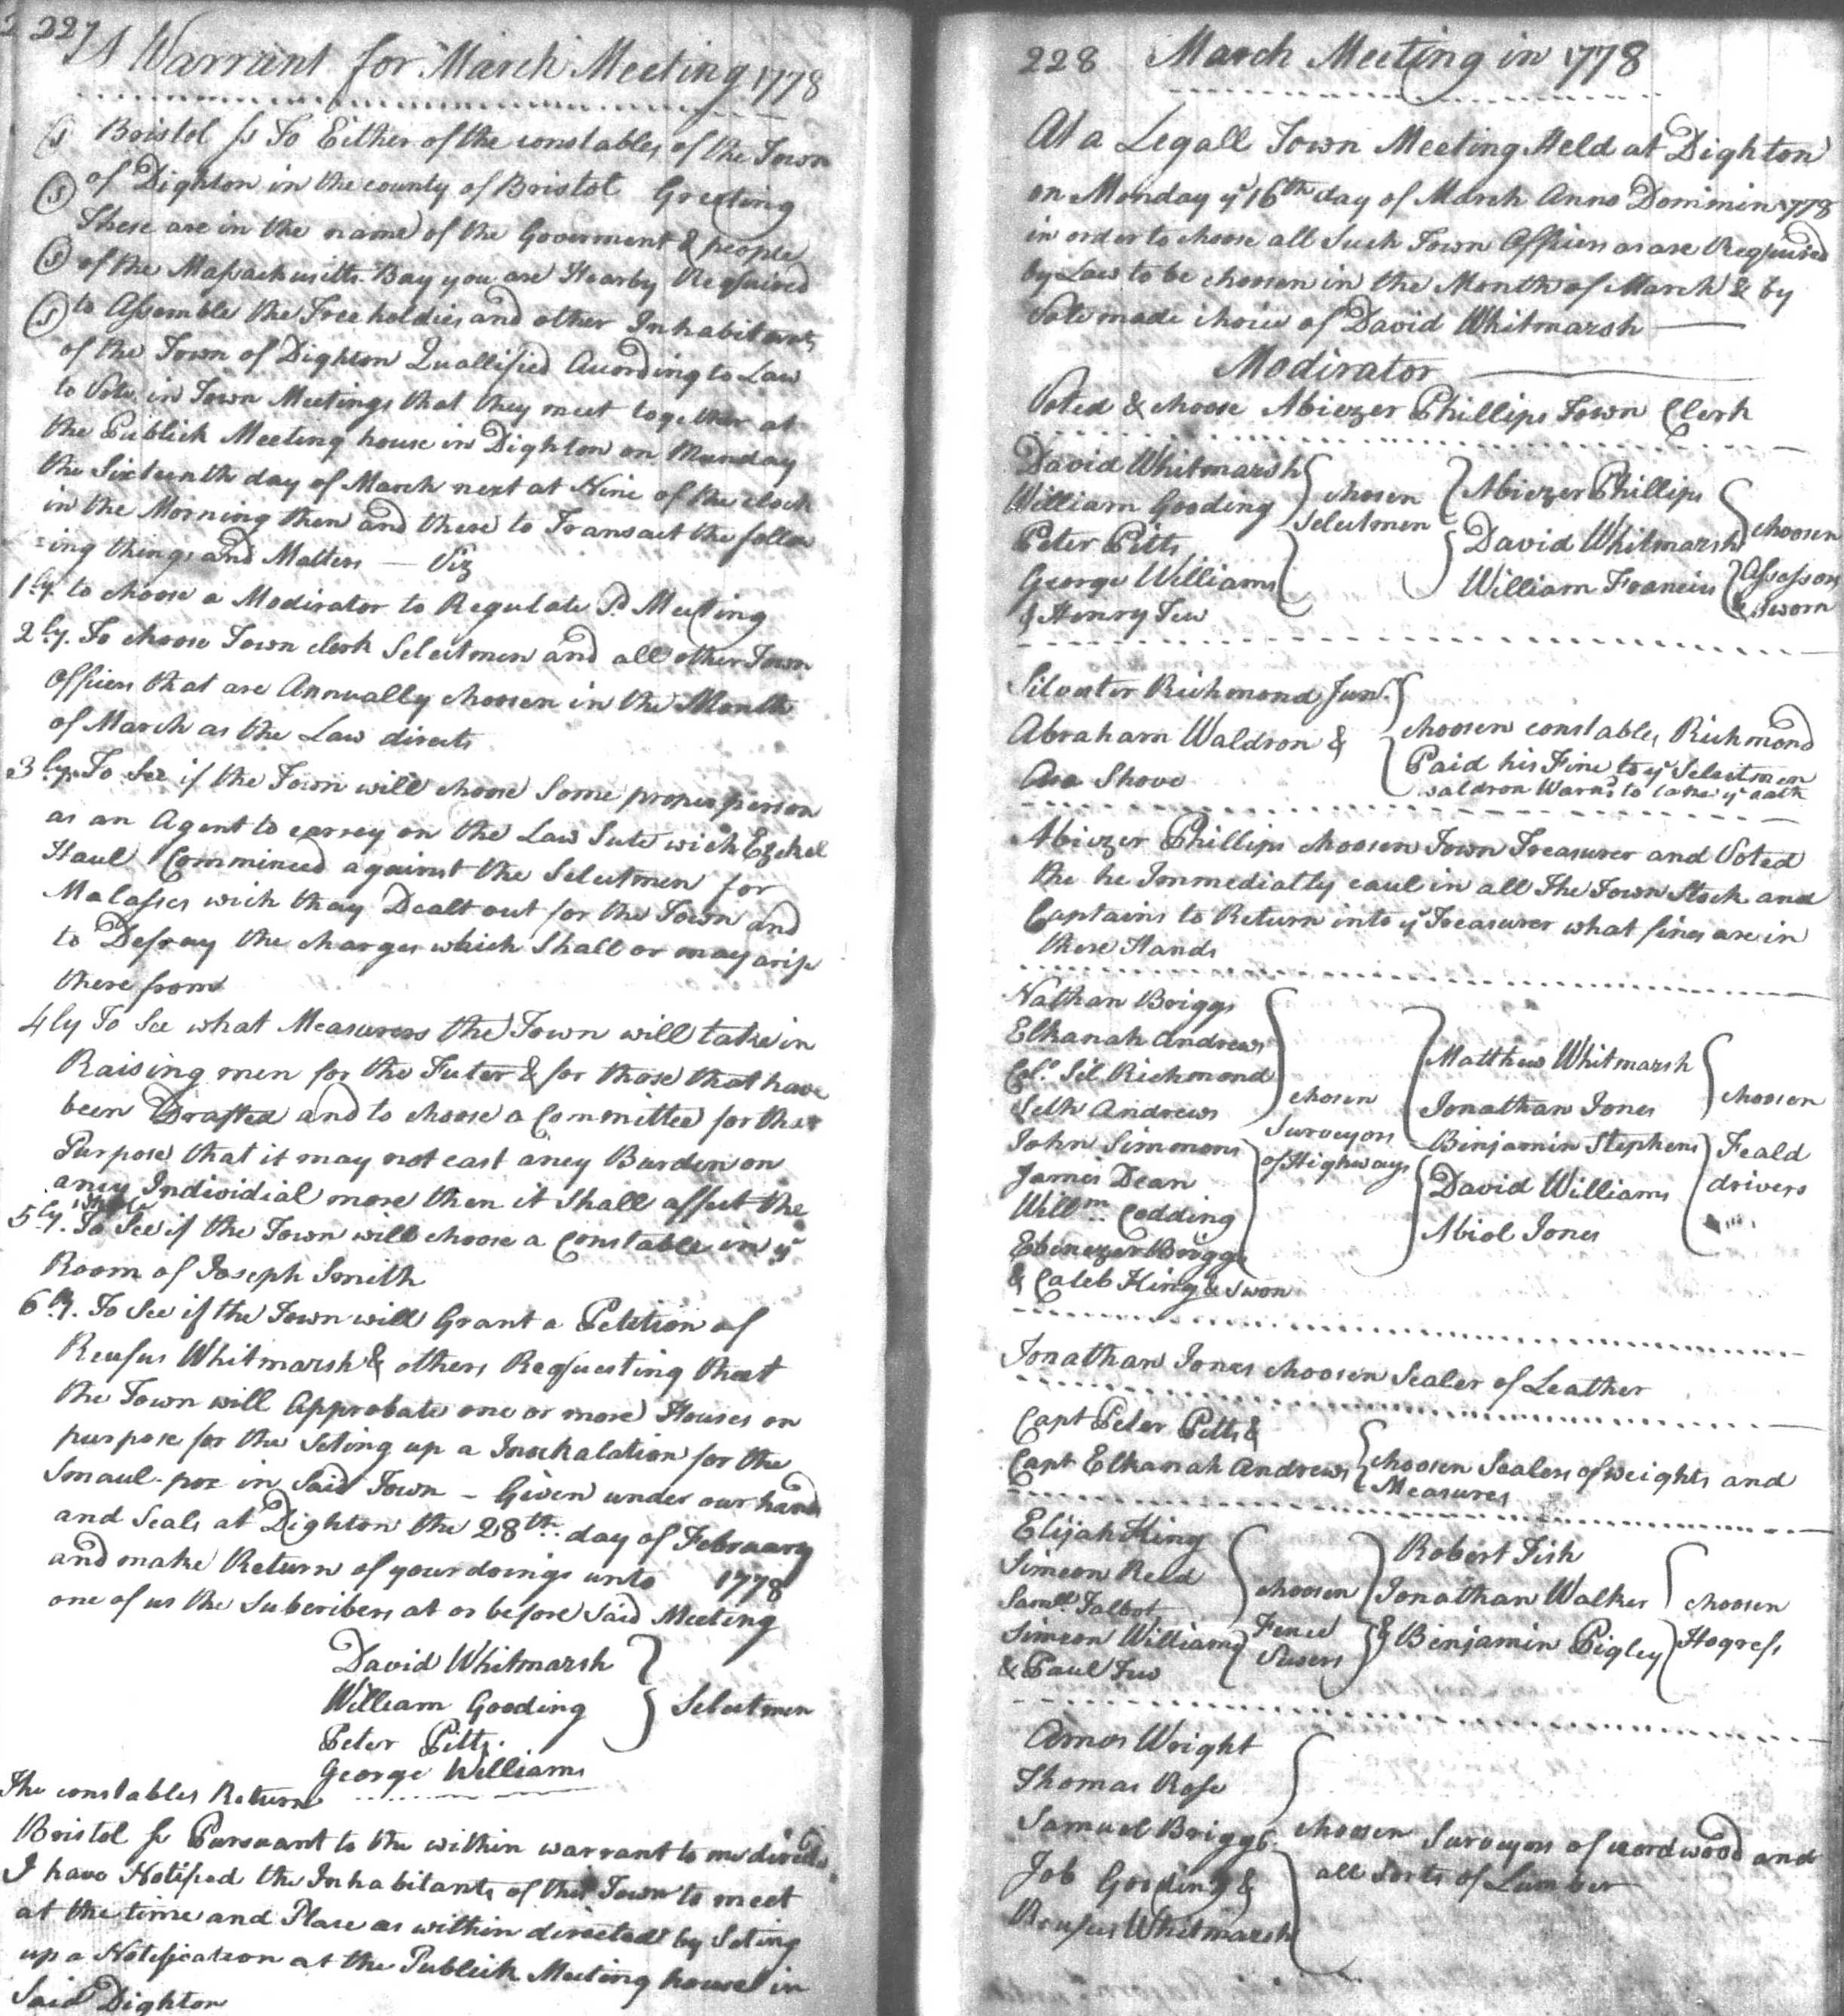 227 A Warrant for March Meeting 1778
Bristol ss To Either of the constables of the Town
of Dighton in the county of Bristol Greeting
These are in the name of the Goverment & people
of the Massachusitts Bay you are Hearby Required
to Assemble the Free holdies and other Inhabitants
of the Town of Dighton Quallified Acording to Law
to Vote in Town Meetings that they meet together at
the Publick Meeting house in Dighton on Munday
the Sixteenth day of March next at Nine of the clock
in the Morning then and there to Transact the follow
=ing things and Matters — Viz
1ly to choose a Modirator to Regulate Sd Meeting
2ly. To choose Town clerk Selectmen and all other Town
Officers that are Annually choosen in the Month
of March as the Law directs
3ly. To See if the Town will choose Some proper person
as an Agent to carrey on the Law Sute wich Ezekel
Haul Comminced against the Selectmen for
Malasses wich thay Dealt out for the Town and
to Defray the charges which Shall or may aris
there from
4ly To See what Measurers the Town will take in
Raising men for the Futer & for those that have
been Drafted and to choose a Committee for that
Purpose that it may not cast aney Burden on
aney Individial more then it Shall affect the
whole
5ly. To See if the Town will choose a Constable in ye
Room of Joseph Smith
6ly. To See if the Town will Grant a Petition of
Reufus Whitmarsh & others Requesting that
the Town will Approbate one or more Houses on
purpose for the Seting up a Inockalation for the
Smaul-pox in Said Town – Given under our hands
and Seals at Dighton the 28th day of February
and make Return of your doings unto 1778
one of us the Subcribers at or before Said Meeting
David Whitmarsh
William Gooding
Selectmen
Peter Pitts.
George Williams
The constables Return
Bristol ss Pursuant to the within warrant to me directed
I have Notifyed the Inhabitants of this Town to meet
at the time and Place as within directed by Seting
up a Notification at the Publick Meeting house in
Said Dighton
228 March Meeting in 1778
At a Legall Town Meeting Held at Dighton
on Monday ye 16th day of March Anno Dominin 1778
in order to choose all Such Town Officers as are Required
by Law to be choosen in the Month of March & by
Vote made choice of David Whitmarsh
Modirator
Voted & choose Abiezer Phillips Town Clerk
David Whitmarsh
William Gooding
Peter Pitts
George Williams
& Henry Tew
chosen
Selectmen
Abiezer Phillips
David Whitmarsh
William Francies
choosen
Assessors
& Sworn
Silvester Richmond Junr.
Abraham Waldron &
Asa Shove
choosen constables Richmond
Paid his Fine to ye Selectmen
Waldron Warnd to take ye oath
Abiezer Phillips choosen Town Treasurer and Voted
the he Immediatly caul in all The Town Stock and
Captains to Return into ye Treasurer what fines are in
there Hands
Nathan Briggs
Elkanah Andrews
Colo. Sil. Richmond
Seth Andrews
John Simmons
James Dean
Willm. Codding
Ebenezer Briggs
& Caleb King & Swon
chosen
Surveyors
of Highways
Matthew Whitmarsh
Jonathan Jones
Binjamin Stephens
David Williams
Abiel Jones
choosen
Feald
drivers
Jonathan Jones choosen Sealer of Leather
Capt Peter Pitts &
Capt Elkanah Andrews
choosen Sealers of weights and
Measures
Elijah King
Simeon Reed
Samll Talbot
Simeon Williams
& Paul Tew
choosen
Fence
Vewers
Robert Fish
Jonathan Walker
& Benjamin Pigley
choosen
Hogrefs
Amos Wright
Thomas Rose
Samuel Briggs
Job Gooding &
Reufus Whitmarsh
choosen Surveyors of cord wood and
all Sorts of Lumber